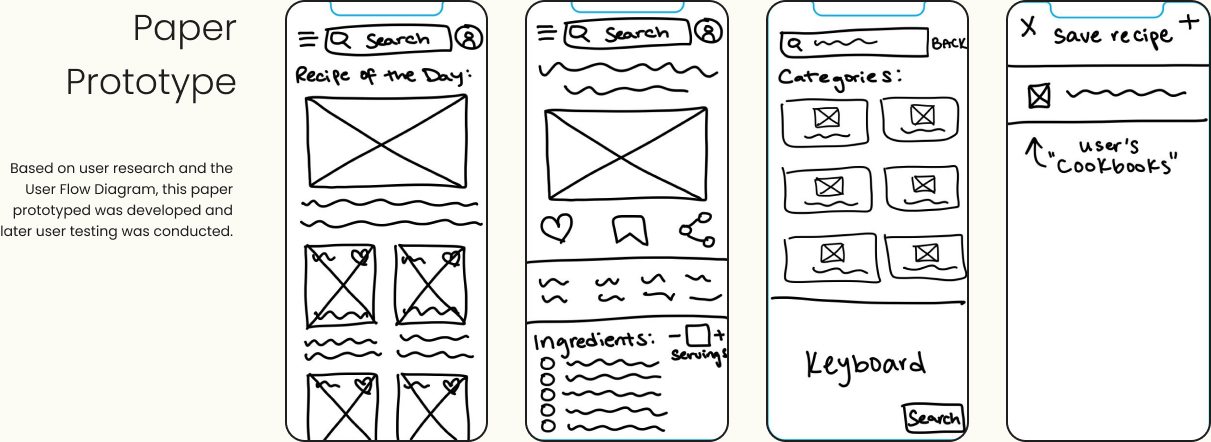 Paper
Prototype
Based on user research and the
User Flow Diagram, this paper
prototyped was developed and
later user testing was conducted.
Search
Recipe of the Day:
Search
Ingredients:
- +
Servings
BACK
Categories:
Keyboard
Search
X save recipe +
user's
"Cookbooks"